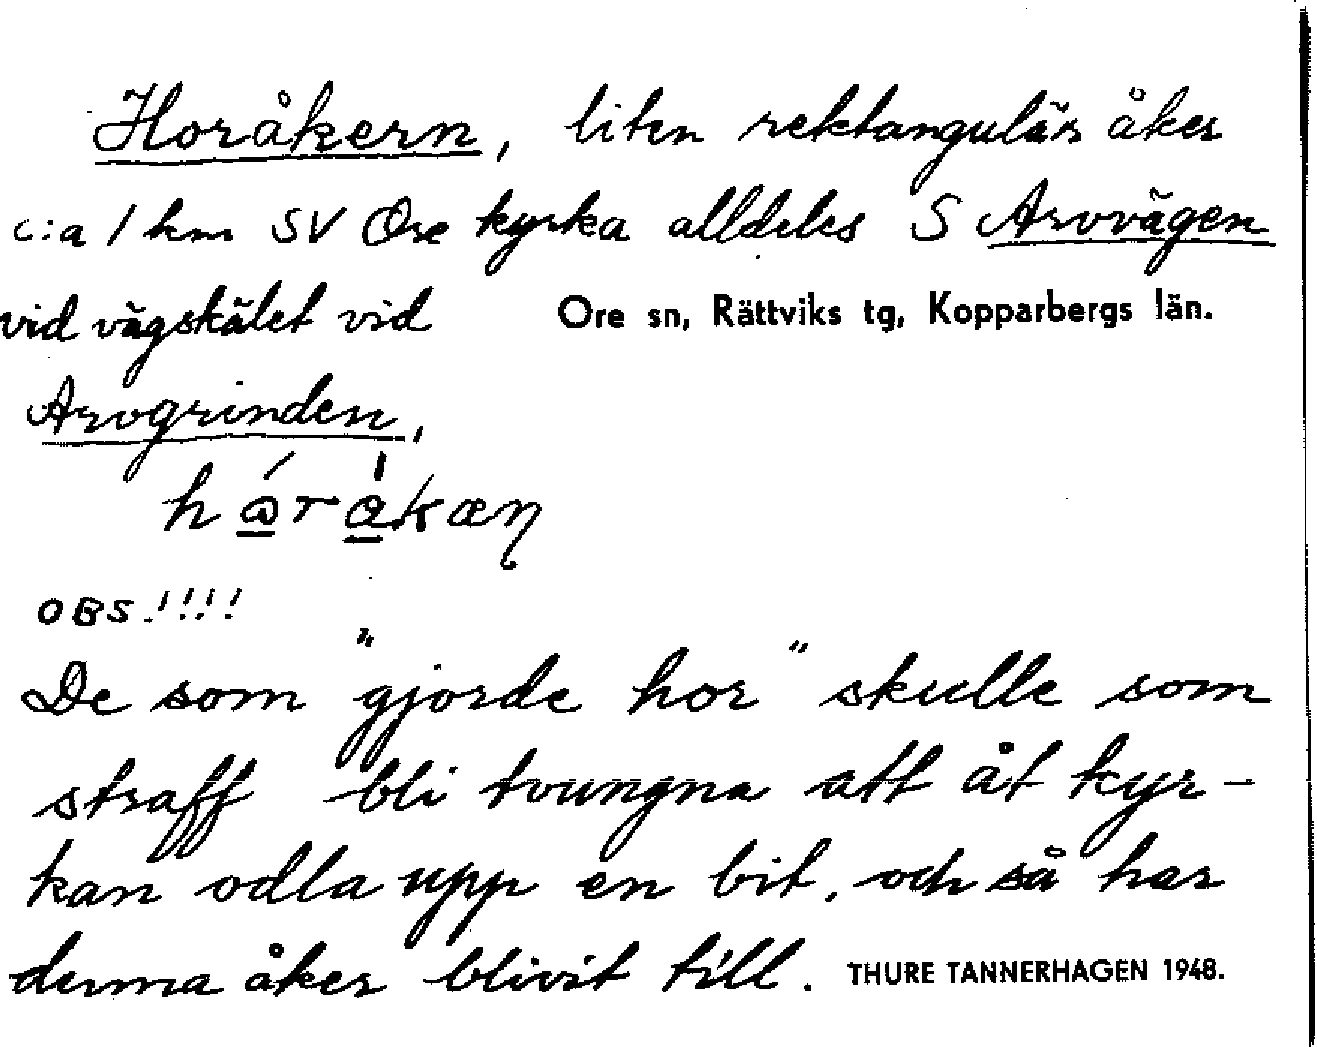 Horåkern, liten rektangulär åker
c:a 1 km SV Ore kyrka alldeles S Arvvägen
vid vägskälet vid
Ore sn, Rättviks tg, Kopparbergs län.
Arvgrinden,
OBS.!!!!
De som "gjorde hor" skulle som
straff bli tvungna att åt kyr-
kan odla upp en bit, och så har
denna åker blivit till.
THURE TANNERHAGEN 1948.